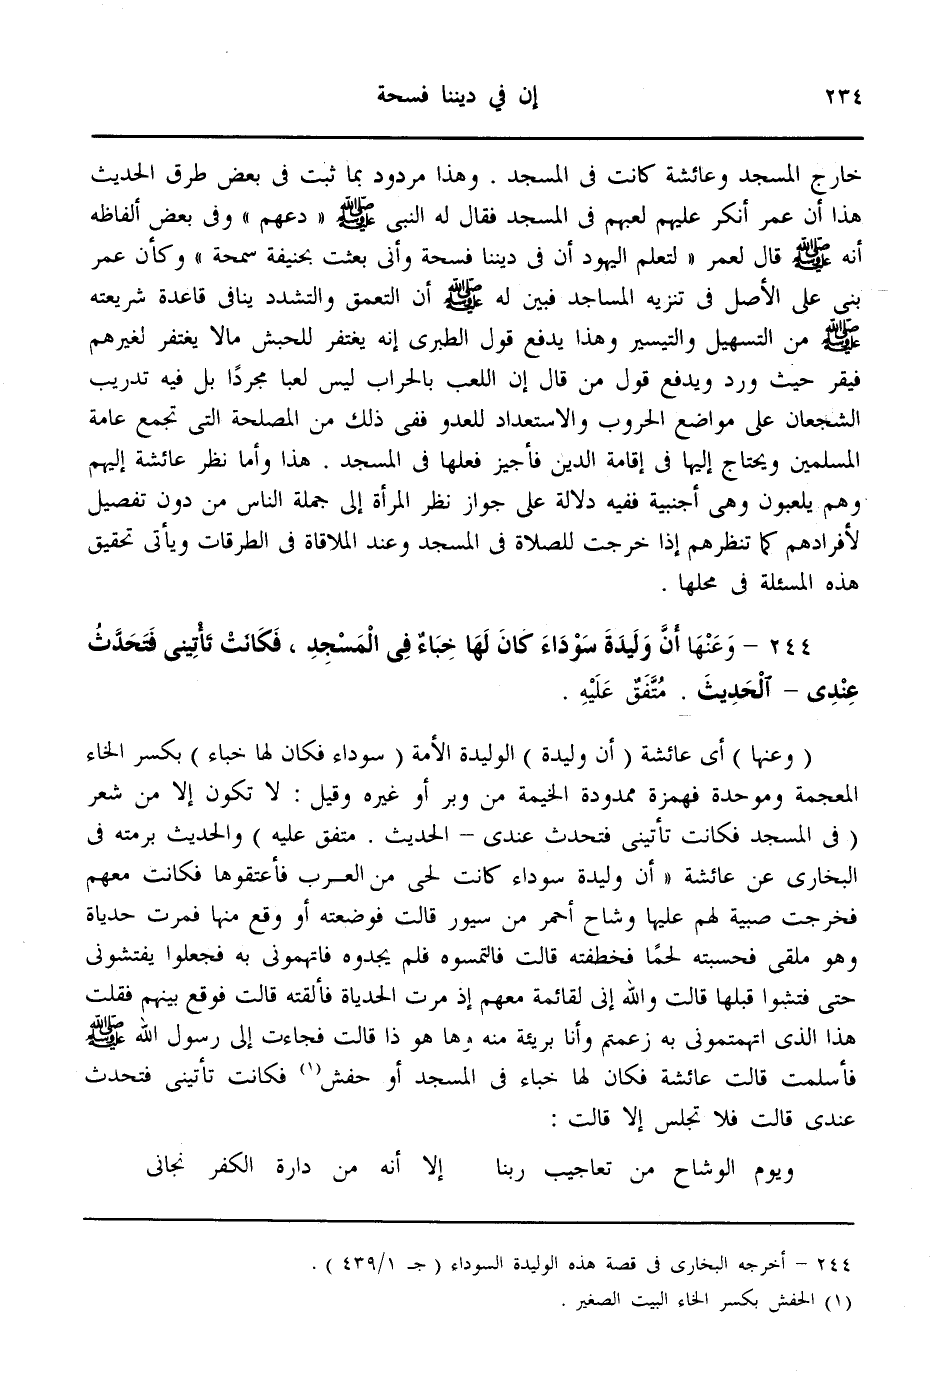 ٢٣٤ إن في ديننا فسحة
خارج المسجد وعائشة كانت فى المسجد . وهذا مردود بما ثبت فى بعض طرق الحديث
هذا أن عمر أنكر عليهم لعبهم فى المسجد فقال له النبى ﷺ « دعهم » وفى بعض ألفاظه
أنه ﷺ قال لعمر « لتعلم اليهود أن فى ديننا فسحة وأنى بعثت بحنيفة سمحة » وكأن عمر
بنى على الأصل فى تنزيه المساجد فبين له ﷺ أن التعمق والتشدد ينافى قاعدة شريعته
ﷺ من التسهيل والتيسير وهذا يدفع قول الطبرى إنه يغتفر للحبش مالا يغتفر لغيرهم
فيقر حيث ورد ويدفع قول من قال إن اللعب بالحراب ليس لعبا مجردًا بل فيه تدريب
الشجعان على مواضع الحروب والاستعداد للعدو ففى ذلك من المصلحة التى تجمع عامة
المسلمين ويحتاج إليها فى إقامة الدين فأجيز فعلها فى المسجد . هذا وأما نظر عائشة إليهم
وهم يلعبون وهى أجنبية ففيه دلالة على جواز نظر المرأة إلى جملة الناس من دون تفصيل
لأفرادهم كما تنظرهم إذا خرجت للصلاة فى المسجد وعند الملاقاة فى الطرقات ويأتى تحقيق
هذه المسئلة فى محلها .
٢٤٤ – وَعَنْهَا أَنَّ وَلِيدَةً سَوْدَاءَ كَانَ لَهَا خِبَاءٌ فِى الْمَسْجِدِ ، فَكَانَتْ تَأْتِينِى فَتَحَدَّثُ
عِنْدِى – الْحَدِيثَ . مُتَّفَقٌ عَلَيْهِ .
( وعنها ) أى عائشة ( أن وليدة ) الوليدة الأمة ( سوداء فكان لها خباء ) بكسر الخاء
المعجمة وموحدة فهمزة ممدودة الخيمة من وبر أو غيره وقيل : لا تكون إلا من شعر
( فى المسجد فكانت تأتينى فتحدث عندى – الحديث . متفق عليه ) والحديث برمته فى
البخارى عن عائشة « أن وليدة سوداء كانت لحى من العرب فأعتقوها فكانت معهم
فخرجت صبية لهم عليها وشاح أحمر من سيور قالت فوضعته أو وقع منها فمرت حدياة
وهو ملقى فحسبته لحمًا فخطفته قالت فالتمسوه فلم يجدوه فاتهمونى به فجعلوا يفتشونى
حتى فتشوا قبلها قالت والله إنى لقائمة معهم إذ مرت الحدياة فألقته قالت فوقع بينهم فقلت
هذا الذى اتهمتمونى به زعمتم وأنا بريئة منه وها هو ذا قالت فجاءت إلى رسول الله ﷺ
فأسلمت قالت عائشة فكان لها خباء فى المسجد أو حفش(١) فكانت تأتينى فتحدث
عندى قالت فلا تجلس إلا قالت :
ويوم الوشاح من تعاجيب ربنا إلا أنه من دارة الكفر نجانى
٢٤٤ – أخرجه البخارى فى قصة هذه الوليدة السوداء ( جـ ٤٣٩/١ ) .
(١) الحفش بكسر الحاء البيت الصغير .